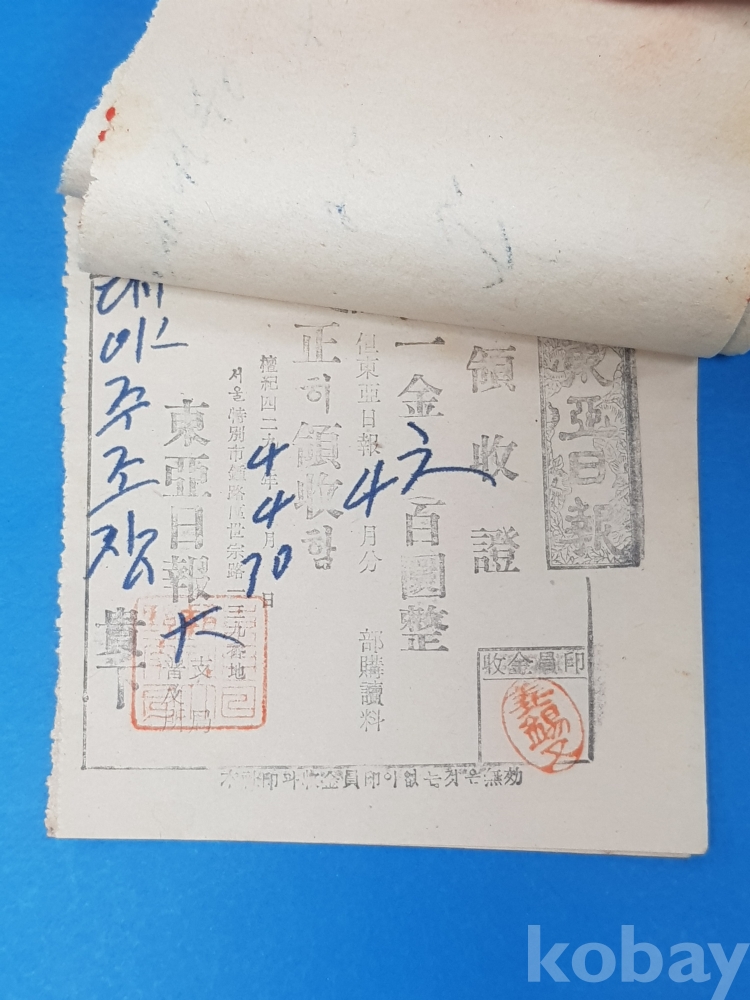 東亞日報
領收證
一金 六百圜整
但東亞日報 4月分 部購讀料
正히領收함
檀紀四二九4年4月10日
서울特別市鍾路區世宗路一三九番地
東亞日報 大 支局 普及所
주조장 貴下
收金員印
本社印과收金員印이없는것은無効
kobay